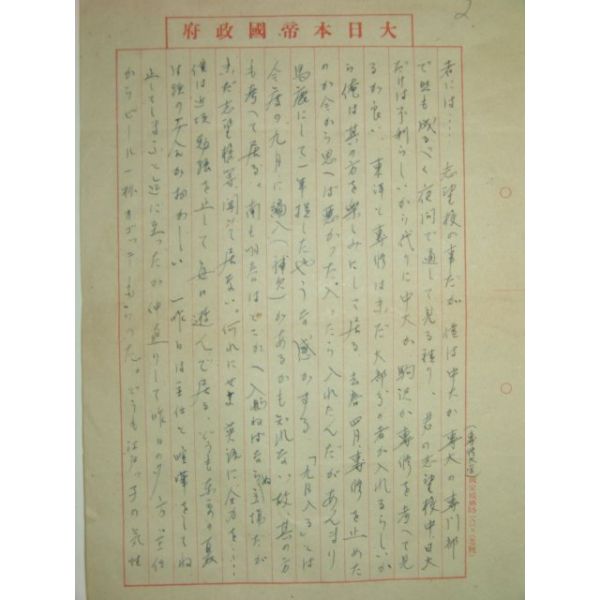 2
大日本帝國政府
者には…　志望校の事だが　僕は中大か専大の専門部
(専修大学)
で且も成るべく夜間で通して見る積り、君の志望校中日大
だけは不利らしいから代りに中大か　駒沢か専修を考へて見
るが良い　東洋と専修は未だ大部分の者が入れるらしいか
ら俺は其の方を楽しみにして居る　去春四月、専修を止めた
のが今から思へば悪かった。入ったら入れたんだがあんまり
馬鹿にして一年損したやうな感がする　「九月入る」とは
今度の九月に編入(補欠)があるかも知れない故、其の方
も考へて居る。南も明春はどこかへ入らねばならぬ立場だが
未だ志望校等聞いて居ない。何れにせよ　英語に全力を……
僕は近頃勉強を止して毎日遊んで居る、どうも東京の夏
は頭の工合が相わしい　一昨日は主任と喧嘩をしてね
止してしまふと迄に至ったが仲直りして昨日の夕方、主任
からビール一杯オゴッてもらった。どうも江戸ッ子の気性